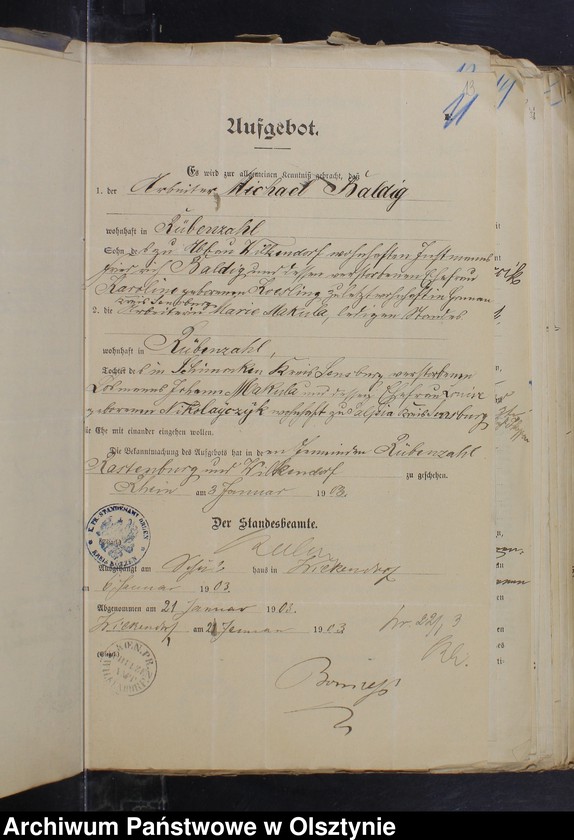 13
11
Aufgebot.
Es wird zur allgemeinen Kenntniß gebracht, daß
1. der Arbeiter Michael Baldig
wohnhaft in Rübenzahl
Sohn des zu Abbau Wilkendorf wohnhaften Instmanns
Baldig und dessen verstorbenen Ehefrau
Karoline geborenen zuletzt wohnhaft in
Kreis Sensburg
2. die Arbeiterin Marie Makula, ledigen Standes
wohnhaft in Rübenzahl,
Tochter des in Schimonken Kreis Sensburg verstorbenen
Losmanns Johann Makula und dessen Ehefrau Louise
geborenen Nikolayczyk wohnhaft zu Kreis Sensburg
die Ehe mit einander eingehen wollen.
Die Bekanntmachung des Aufgebots hat in den Gemeinden Rübenzahl
Rastenburg und Wilkendorf zu geschehen.
Rhein am 3 Januar 1903.
Der Standesbeamte.
Ausgehängt am Schul haus in Wilkendorf
am 6 Januar 1903.
Abgenommen am 21 Januar 1903.
Wilkendorf am 21 Januar 1903
22/1 3
Archiwum Państwowe w Olsztynie